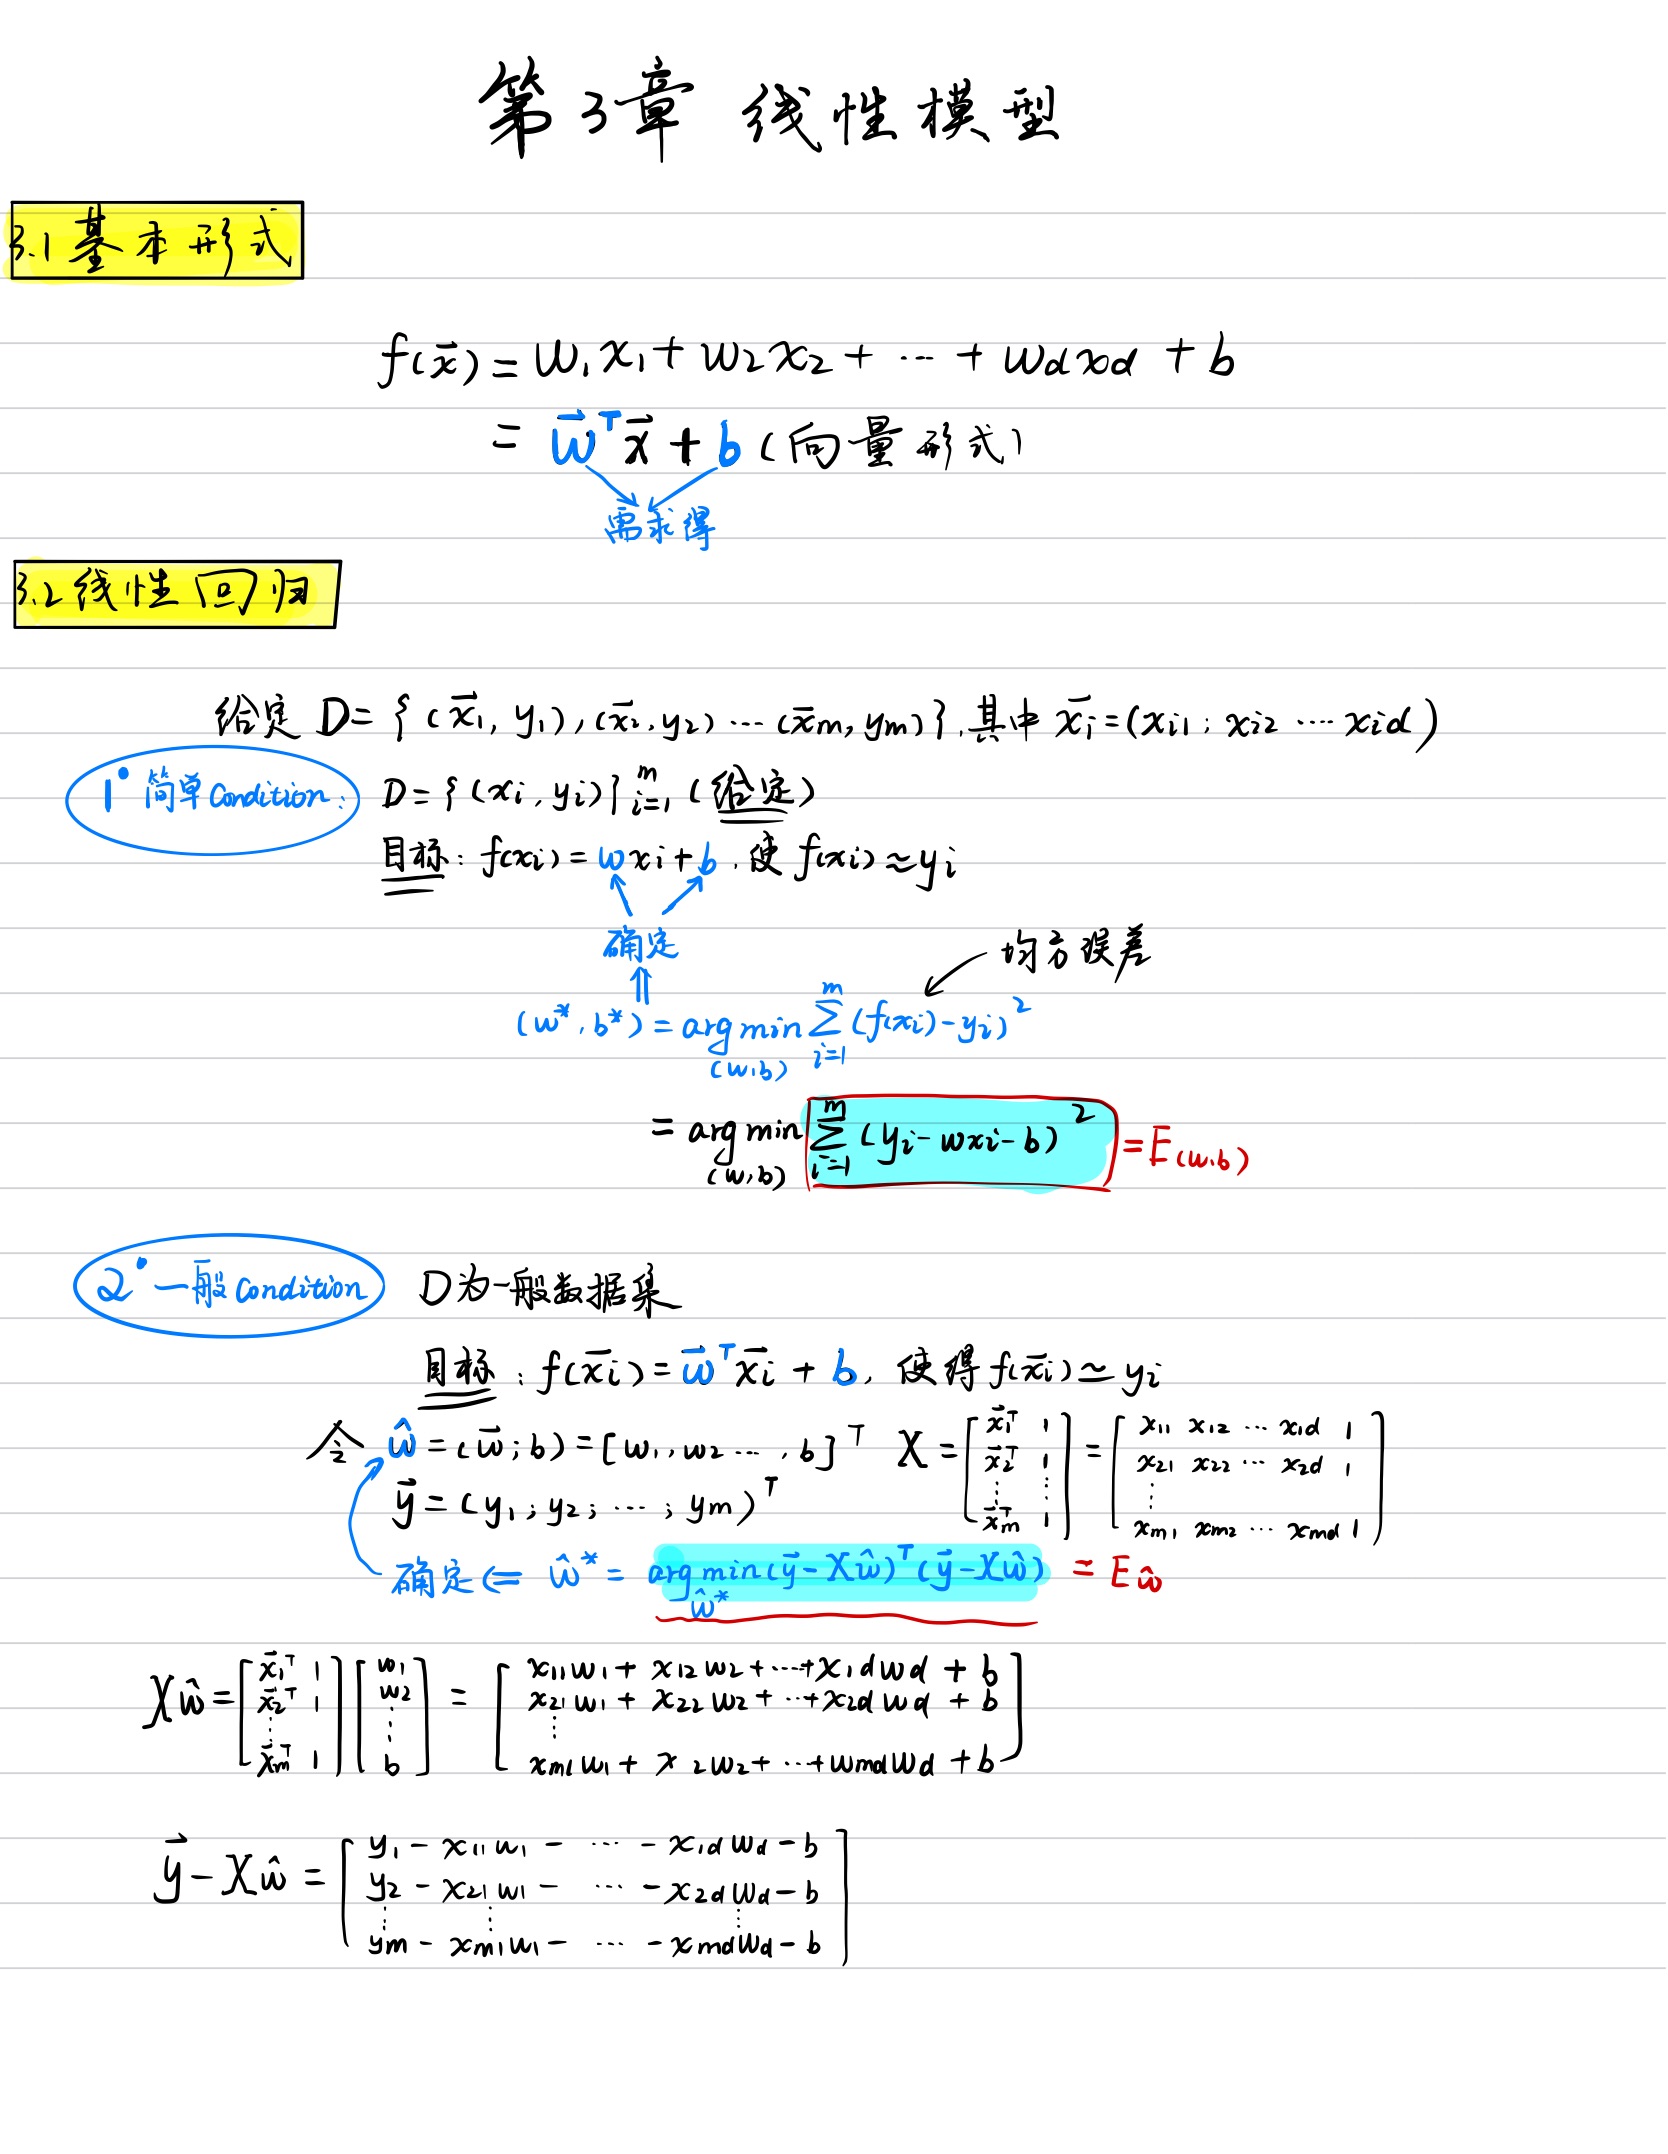 第3章 线性模型
3.1 基本形式
f(x⃗) = w₁x₁ + w₂x₂ + ⋯ + w_d x_d + b
= w⃗ᵀx⃗ + b (向量形式)
需求得
3.2 线性回归
给定 D = {(x⃗₁, y₁), (x⃗₂, y₂) ⋯ (x⃗m, ym)}, 其中 x⃗i = (xi1; xi2 ⋯ xid)
1° 简单 Condition: D = {(xi, yi)}ᵐᵢ₌₁ (给定)
目标: f(xi) = wxi + b, 使 f(xi) ≈ yi
确定
⇑ 均方误差
(w*, b*) = arg min_(w,b) ∑ᵐᵢ₌₁ (f(xi) - yi)²
= arg min_(w,b) ∑ᵐᵢ₌₁ (yi - wxi - b)² = E(w,b)
2° 一般 Condition D为一般数据集
目标: f(x⃗i) = w⃗ᵀx⃗i + b, 使得 f(x⃗i) ≃ yi
令 ŵ = (w⃗; b) = [w₁, w₂ ⋯, b]ᵀ X = [x⃗₁ᵀ 1; x⃗₂ᵀ 1; ⋮ ⋮; x⃗mᵀ 1] = [x11 x12 ⋯ x1d 1; x21 x22 ⋯ x2d 1; ⋮; xm1 xm2 ⋯ xmd 1]
y⃗ = (y₁; y₂; ⋯; ym)ᵀ
确定 ⇐ ŵ* = arg min_ŵ* (y⃗ - Xŵ)ᵀ(y⃗ - Xŵ) = Eŵ
Xŵ = [x⃗₁ᵀ 1; x⃗₂ᵀ 1; ⋮; x⃗mᵀ 1] [w₁; w₂; ⋮; b] = [x11w1 + x12w2 + ⋯ + x1dwd + b; x21w1 + x22w2 + ⋯ + x2dwd + b; ⋮; xm1w1 + x 2w2 + ⋯ + wmdwd + b]
y⃗ - Xŵ = [y1 - x11w1 - ⋯ - x1dwd - b; y2 - x21w1 - ⋯ - x2dwd - b; ⋮ ⋮ ⋮; ym - xm1w1 - ⋯ - xmdwd - b]